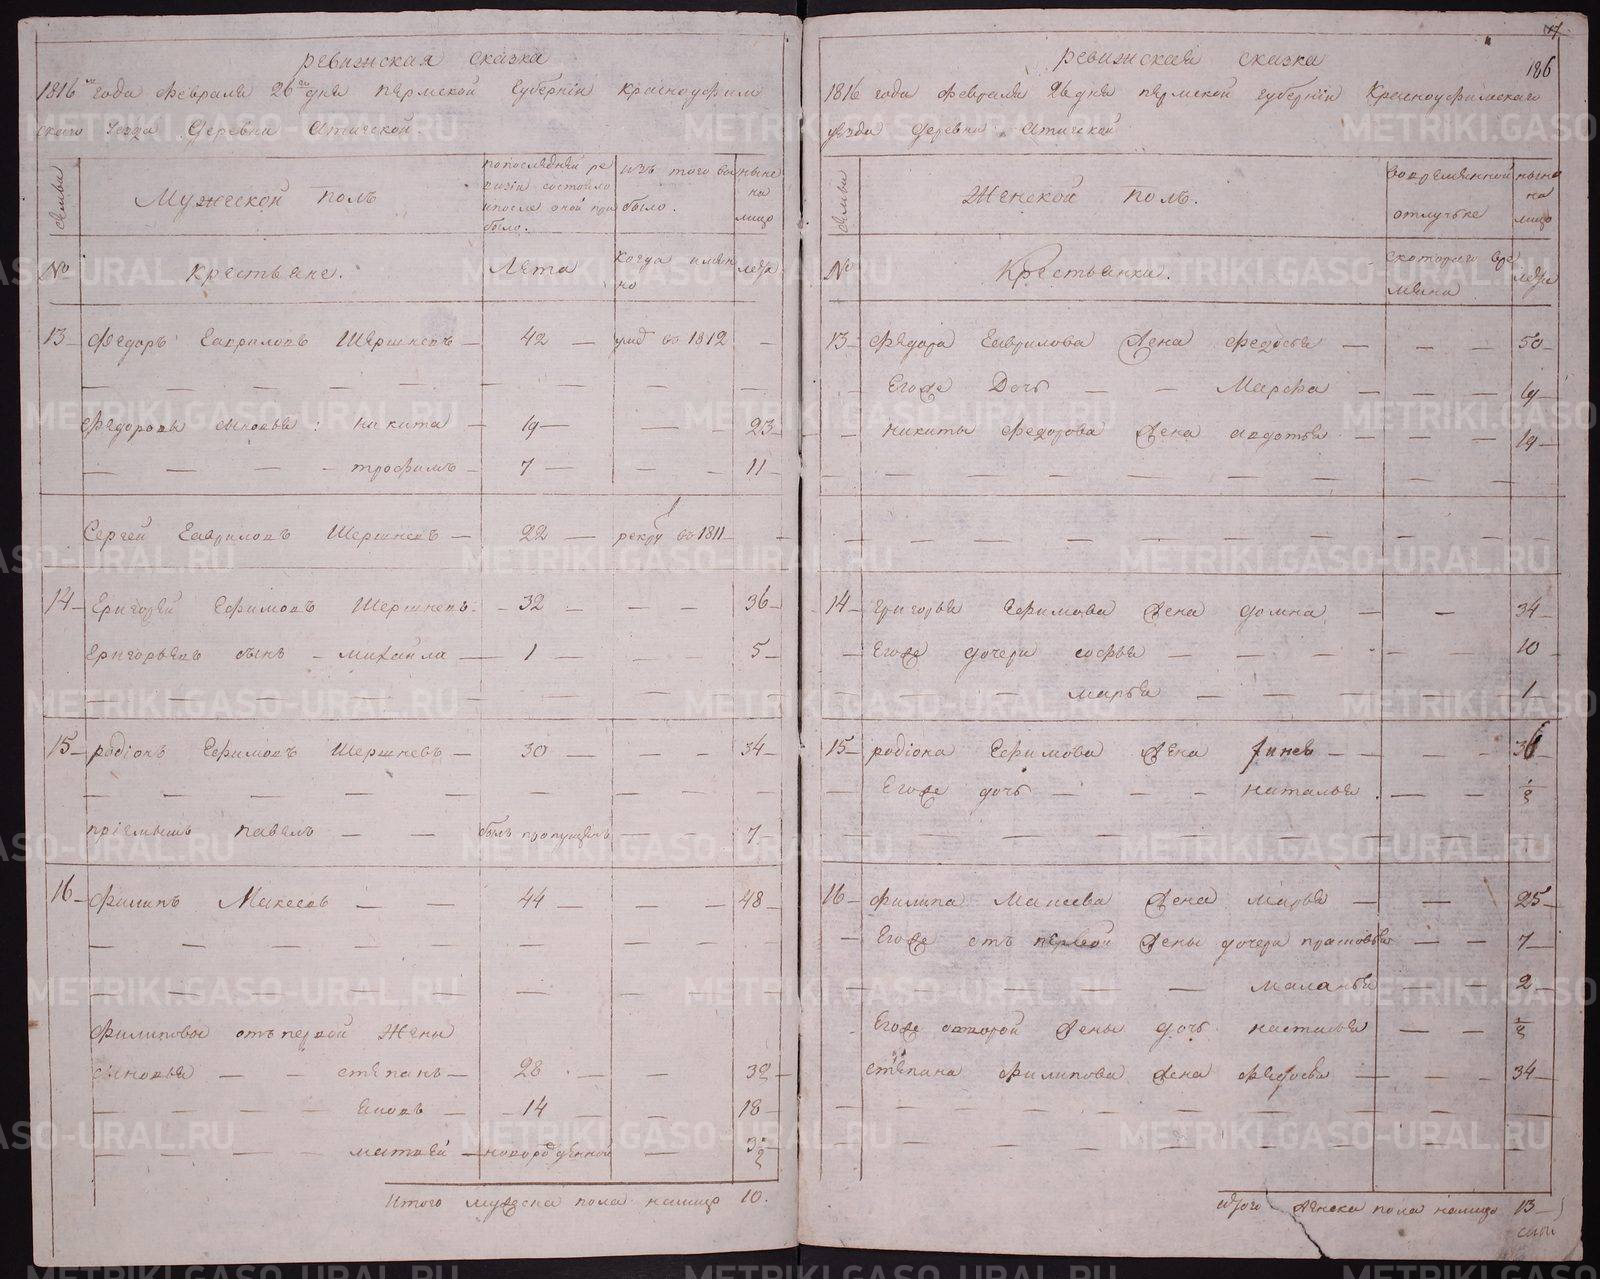 ревижская сказка
1816го года февраля 26го дня пермской губернiи Красноуфим
скаго уезда деревни Атигской.
семьи
Мужеской полъ
попоследней ре
визiи состояло
ипосле оной при
было.
изъ того вы
было.
ныне
на
лицо
№
крестьяне.
Лета
когда имян
но
лета
13 Федоръ Гавриловъ Шершневъ 42 умеръ во 1812
Федоровы сыновья: никита 19 23
трофимъ 7 11
Сергей Гавриловъ Шершневъ 22 рекру во 1811
14 Григорей Ефимовъ Шершневъ 32 36
Григорьевъ сынъ михайла 1 5
15 родiонъ Ефимовъ Шершневъ 30 34
прiемышъ павелъ былъ пропущенъ 7
16 Филипъ Макеевъ 44 48
Филиповы отъ первой жены
сыновья степанъ 28 32
яковъ 14 18
матвей новорожденной 3½
Итого мужеска пола налицо 10.
17
186
ревижская сказка
1816 года февраля 26 дня пермской губернiи Красноуфимскаго
уезда деревни Атигской
семьи
Женской полъ.
вовременной
отлучке
ныне
на
лицо
№
Крестьянки.
скотораго вре
мяни
лета
13 Федора Гаврилова жена федосья 50
Егоже Дочь Марфа 19
никиты Федорова жена авдотья 19
14 Григорья Ефимова жена домна 34
Егоже дочери софья 10
марья 1
15 родiона Ефимова жена 36
Егоже дочь наталья ½
16 Филипа Макеева жена марья 25
Егоже отъ первой жены дочери прасковья 7
маланья 2
Егоже овторой жены дочь настасья ½
степана Филипова жена федосья 34
Итого женска пола налицо 13